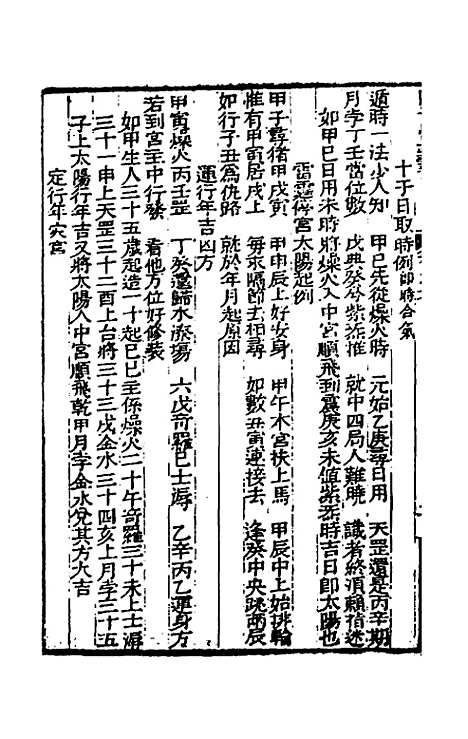 十干日取時例即時合氣
遁時一法少人知 甲巳先從燥火時 元始乙庚尋日用 天罡還是丙辛期
月孛丁壬當位數 戊與癸兮紫炁推 就中四局人難曉 識者終須顧指迷
如甲巳日用未時將燥火入中宮順飛到震庚亥未值紫炁時吉日即太陽也
雷霆停宮太陽起例
甲子尋猪甲戌寅 甲申辰上好安身 甲午木宮快上馬 甲辰中上始排輪
惟有甲寅居戌上 每來隔節去相尋 如數丑寅連接去 逢葵中央疏兩辰
如行子丑為仇路 就於年月起原因
運行年吉凶方
甲寅燥火丙壬罡 丁癸還歸水潦傷 六戊奇羅巳土溽 乙辛丙乙運身方
若到宮主中行禁 看他方位好修裝
如甲生人三十五歲起造一十起巳巳主係燥火二十午奇羅三十未上土溽
三十一申上天罡三十二酉上台將三十三戌金水三十四亥上月孛三十五
子上太陽行年吉又將太陽入中宮順飛乾甲月孛金水兌其方大吉
定行年灾宮